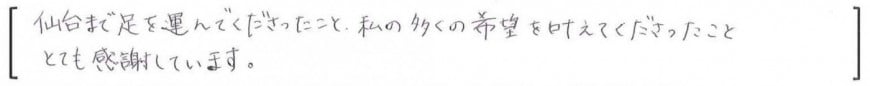 仙台まで足を運んでくださったこと、私の多くの希望を叶えてくださったこと
とても感謝しています。